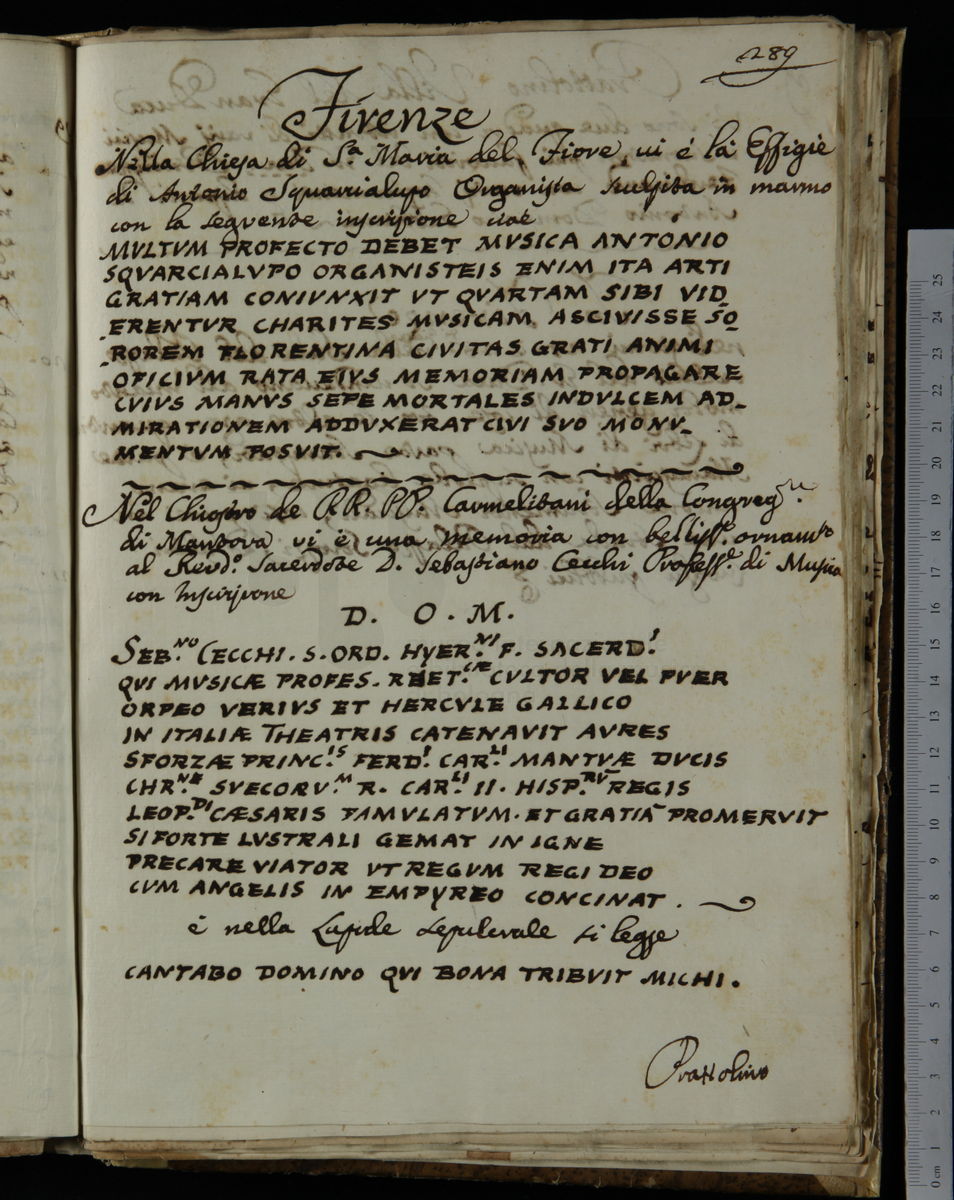 289
Firenze
Nella Chiesa di S.a Maria del Fiore, vi é la Effigie
di Antonio Squarcialupo Organista sculpita in marmo
con la seguente inscrizione cioé
MVLTVM PROFECTO DEBET MVSICA ANTONIO
SQVARCIALVPO ORGANISTEIS ENIM ITA ARTI
GRATIAM CONIVNXIT VT QVARTAM SIBI VID
ERENTVR CHARITES MVSICAM ASCIVISSE SO
ROREM FLORENTINA CIVITAS GRATI ANIMI
OFICIVM RATA EIVS MEMORIAM PROPAGARE
CVIVS MANVS SEPE MORTALES INDVLCEM AD_
MIRATIONEM ADDVXERAT CIVI SVO MONV_
MENTVM POSVIT.
Nel Chiostro de R.R. PP. Carmelitani della Congreg.ne
di Mantova vi è una memoria con belliss.o ornam.to
al Revd.o Sacerdote D. Sebastiano Cecchi Profess.e di Musica
con Inscrizione
D. O. M.
SEB.NO CECCHI. S. ORD. HYER.NI F. SACERD.I
QVI MVSICÆ PROFES. RHET.CÆ CVLTOR VEL PVER
ORPEO VERIVS ET HERCVLE GALLICO
IN ITALIÆ THEATRIS CATENAVIT AVRES
SFORZÆ PRINC.IS FERD.I CAR.LI MANTVÆ DVCIS
CHR.NÆ SVECORV.M R. CAR.LI II. HISP.RV REGIS
LEOP.DI CÆSARIS FAMVLATVM. ET GRATIA PROMERVIT
SI FORTE LVSTRALI GEMAT IN IGNE
PRECARE VIATOR VT REGVM REGI DEO
CVM ANGELIS IN EMPYREO CONCINAT.
è nella Lapide sepulcrale si legge
CANTABO DOMINO QVI BONA TRIBVIT MICHI.
Prattolino